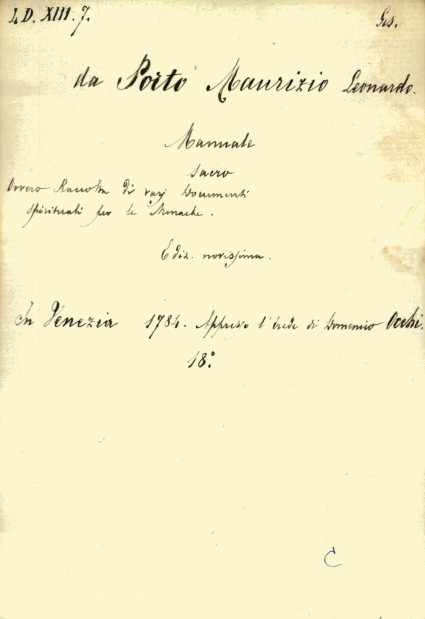 I. D. XIII. 7. Ges.
da Porto Maurizio Leonardo.
Manuale
sacro
Ovvero Raccolta di varj Documenti
spirituali per le Monache.
Ediz. novissima.
In Venezia 1784. Appresso l'erede di Domenico Occhi.
18.°
C